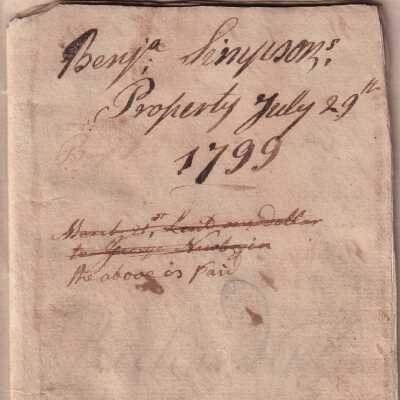 Benjᵃ Simpsonˢ
Property July 29ᵗʰ
1799
March 21ˢᵗ, Lent one dollar
to George Newbegin
the above is Paid